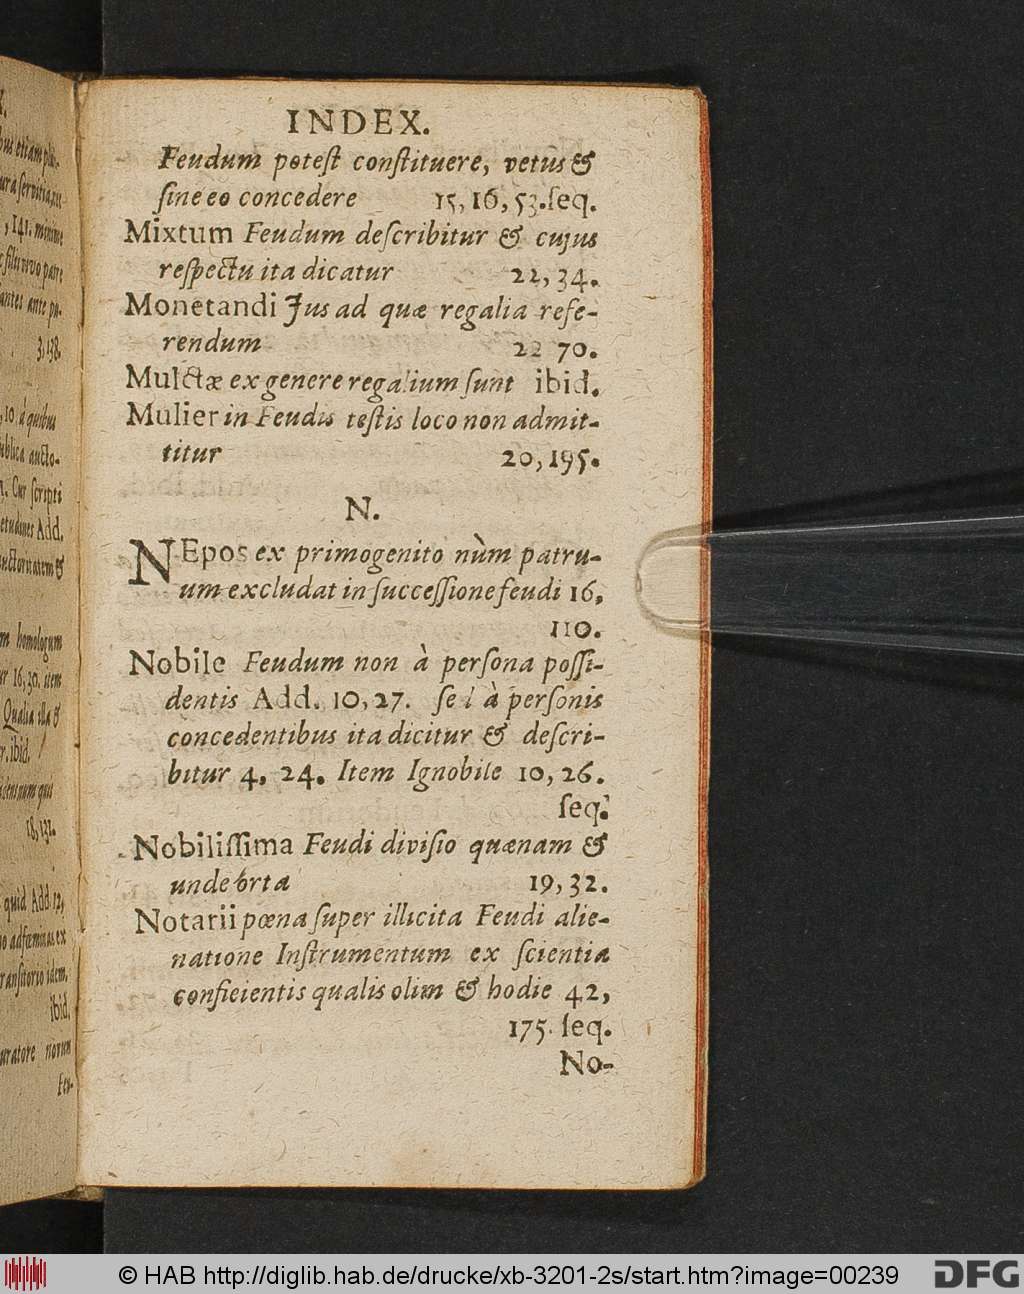 INDEX.
Feudum potest constituere, vetus &
sine eo concedere 15, 16, 53. seq.
Mixtum Feudum describitur & cujus
respectu ita dicatur 22, 34.
Monetandi Jus ad quæ regalia refe-
rendum 22 70.
Mulctæ ex genere regalium sunt ibid.
Mulier in Feudis testis loco non admit-
titur 20, 195.
N.
NEpos ex primogenito nùm patru-
um excludat in successione feudi 16,
110.
Nobile Feudum non à persona possi-
dentis Add. 10, 27. sed à personis
concedentibus ita dicitur & descri-
bitur 4, 24. Item Ignobile 10, 26.
seq.
Nobilissima Feudi divisio quænam &
unde orta 19, 32.
Notarii pœna super illicita Feudi alie-
natione Instrumentum ex scientia
conficientis qualis olim & hodie 42,
175. seq.
No-
© HAB http://diglib.hab.de/drucke/xb-3201-2s/start.htm?image=00239
DFG